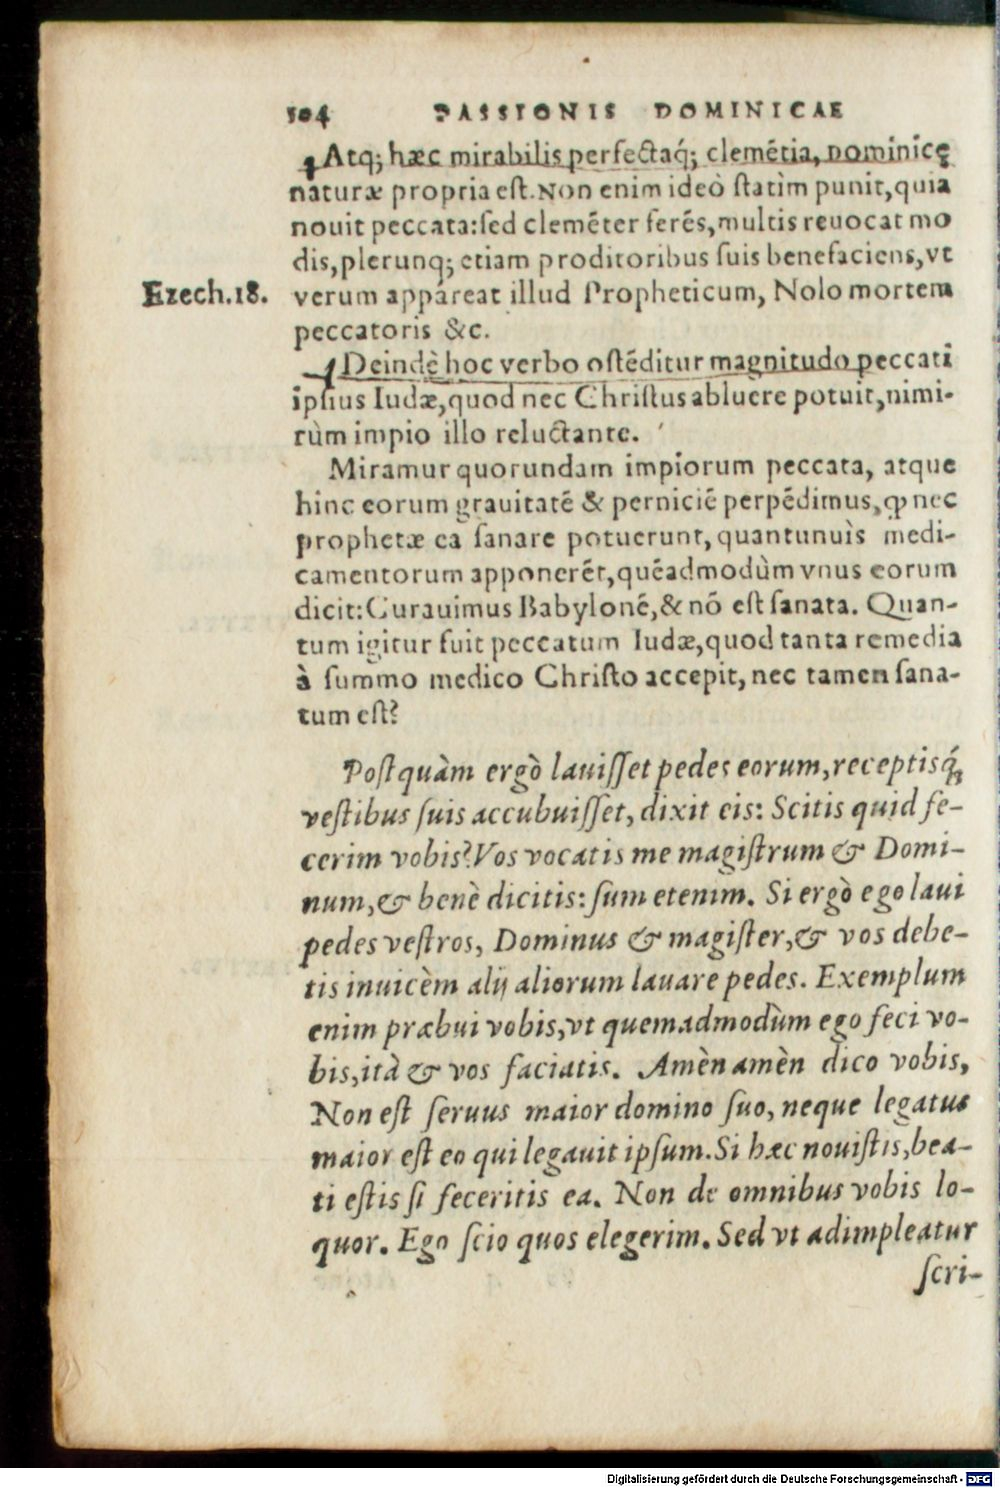 104 PASSIONIS DOMINICAE
Atq; hæc mirabilis perfectaq́; clemẽtia, dominicę
naturæ propria est. Non enim ideò statìm punit, quia
nouit peccata: sed clemẽter ferẽs, multis reuocat mo
dis, plerunq; etiam proditoribus suis benefaciens, vt
Ezech.18. verum appareat illud Propheticum, Nolo mortem
peccatoris &c.
Deindè hoc verbo ostẽditur magnitudo peccati
ipsius Iudæ, quod nec Christus abluere potuit, nimi-
rùm impio illo reluctante.
Miramur quorundam impiorum peccata, atque
hinc eorum grauitatẽ & perniciẽ perpẽdimus, ꝙ nec
prophetæ ea sanare potuerunt, quantunuìs medi-
camentorum apponerẽt, quẽadmodùm vnus eorum
dicit: Curauimus Babylonẽ, & nõ est sanata. Quan-
tum igitur fuit peccatum Iudæ, quod tanta remedia
à summo medico Christo accepit, nec tamen sana-
tum est?
Postquàm ergò lauisset pedes eorum, receptisq́;
vestibus suis accubuisset, dixit eis: Scitis quid fe-
cerim vobis? Vos vocatis me magistrum & Domi-
num, & benè dicitis: sum etenim. Si ergò ego laui
pedes vestros, Dominus & magister, & vos debe-
tis inuicèm alij aliorum lauare pedes. Exemplum
enim præbui vobis, vt quemadmodùm ego feci vo-
bis, ità & vos faciatis. Amèn amèn dico vobis,
Non est seruus maior domino suo, neque legatus
maior est eo qui legauit ipsum. Si hæc nouistis, bea-
ti estis si feceritis ea. Non de omnibus vobis lo-
quor. Ego scio quos elegerim. Sed vt adimpleatur
scri-
Digitalisierung gefördert durch die Deutsche Forschungsgemeinschaft - DFG